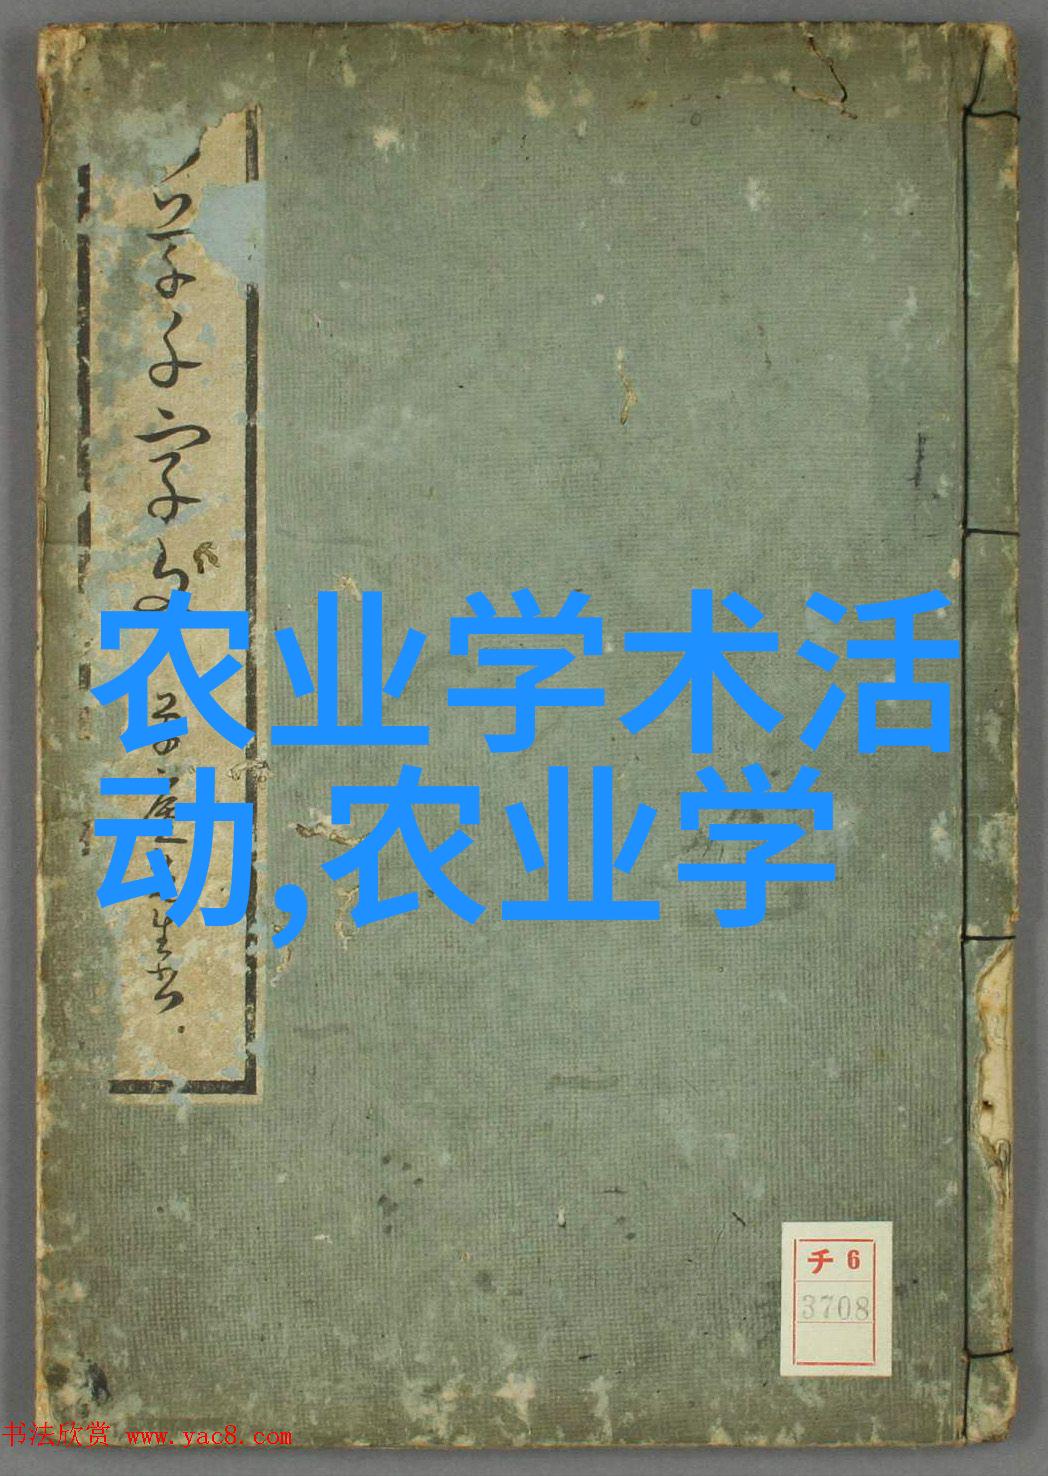 草千字文
农业学术活
动,农业学
チ 6
3708
书法欣赏 www.yac8.com